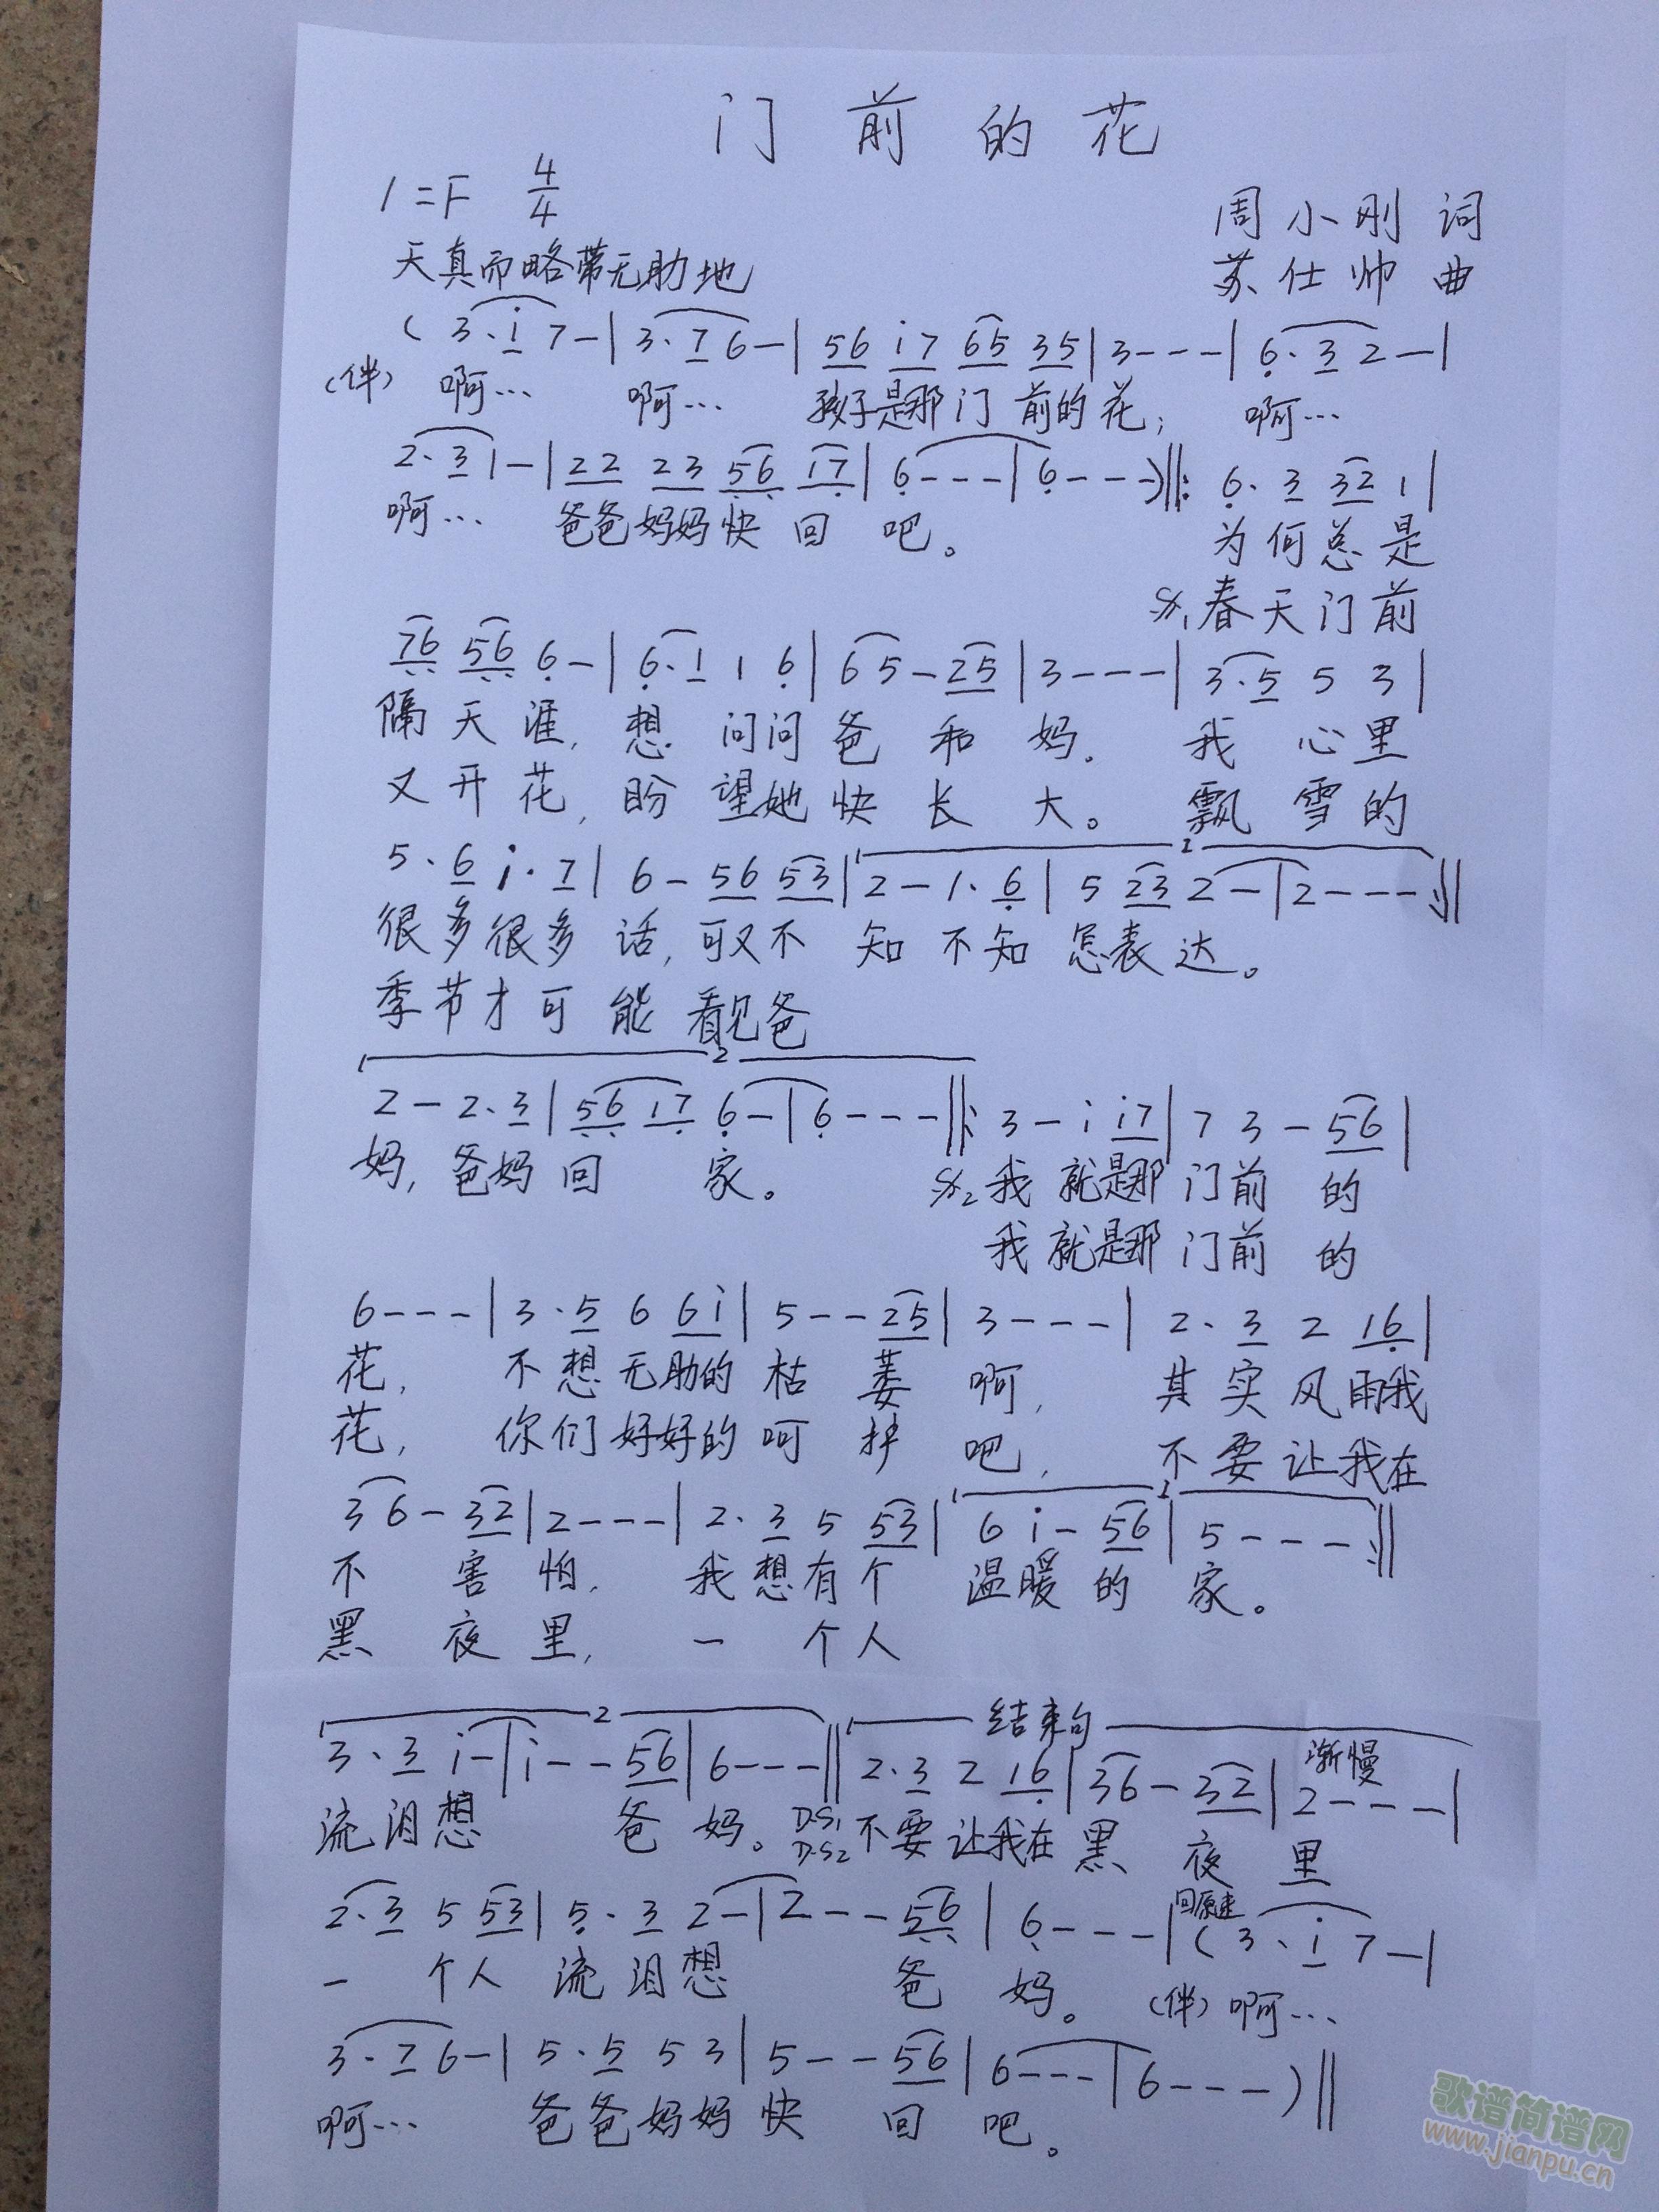 门前的花
1=F 4/4
周小刚 词
天真而略带无助地
苏仕帅 曲
( 3·i 7 - | 3·7 6 - | 56 i7 65 35 | 3 - - - | 6·3 2 - |
(伴) 啊… 啊… 孩子是那门前的花; 啊…
2·3 1 - | 22 23 56 17 | 6 - - - | 6 - - - ) ‖: 6·3 32 1 |
啊… 爸爸妈妈快回吧。 为何总是
𝄋1 春天门前
76 56 6 - | 6·1 1 6 | 6 5 - 25 | 3 - - - | 3·5 5 3 |
隔天涯, 想问问爸和妈. 我心里
又开花, 盼望她快长大。 飘雪的
5·6 i·7 | 6 - 56 53 | 1 2 - 1·6 | 5 23 2 - | 2 - - - :‖
很多很多话, 可又不知不知怎表达。
季节才可能看见爸
2
2 - 2·3 | 56 17 6 - | 6 - - - ‖: 3 - i i7 | 7 3 - 56 |
妈, 爸妈回家。 𝄋2 我就是那门前的
我就是那门前的
6 - - - | 3·5 6 6i | 5 - - 25 | 3 - - - | 2·3 2 16 |
花, 不想无助的枯萎啊, 其实风雨我
花, 你们好好的呵护吧, 不要让我在
3 6 - 32 | 2 - - - | 2·3 5 53 | 1 6 i - 56 | 5 - - - :‖
不害怕, 我想有个温暖的家。
黑夜里, 一个人
2 结束句
3·3 i - | i - - 56 | 6 - - - ‖ 2·3 2 16 | 36 - 32 | 渐慢 2 - - - |
流泪想爸妈。 D.S1 D.S2 不要让我在黑夜里
2·3 5 53 | 5·3 2 - | 2 - - 56 | 6 - - - | 回原速 ( 3·i 7 - |
一个人流泪想爸妈。 (伴) 啊…
3·7 6 - | 5·5 5 3 | 5 - - 56 | 6 - - - | 6 - - - ) ‖
啊… 爸爸妈妈快回吧。
歌谱简谱网
www.jianpu.cn